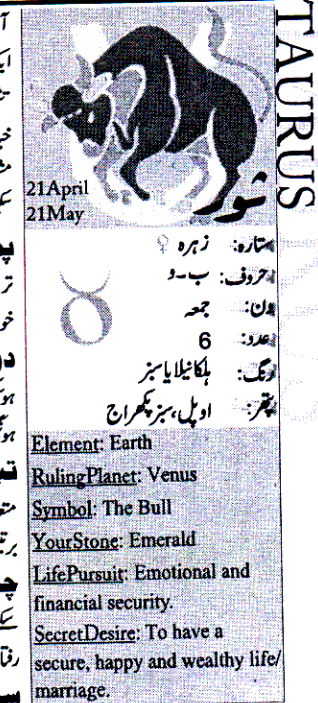 TAURUS
21April
21May
ثور
ستارہ: زہرہ ♀
حروف: ب-و
دن: جمعہ
عدد: 6
رنگ: ہلکا نیلا یا سبز
پتھر: اوپل، سبز پکھراج
Element: Earth
RulingPlanet: Venus
Symbol: The Bull
YourStone: Emerald
LifePursuit: Emotional and
financial security.
SecretDesire: To have a
secure, happy and wealthy life/
marriage.